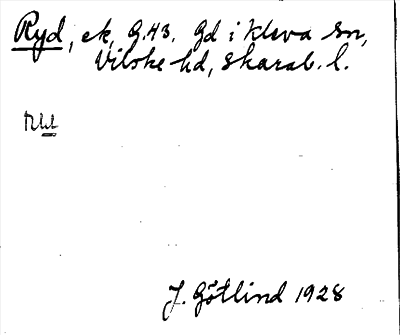 Ryd, ek, G.43. Gd i Kleva sn,
Vilske hd, Skarab. l.
J. Götlind 1928